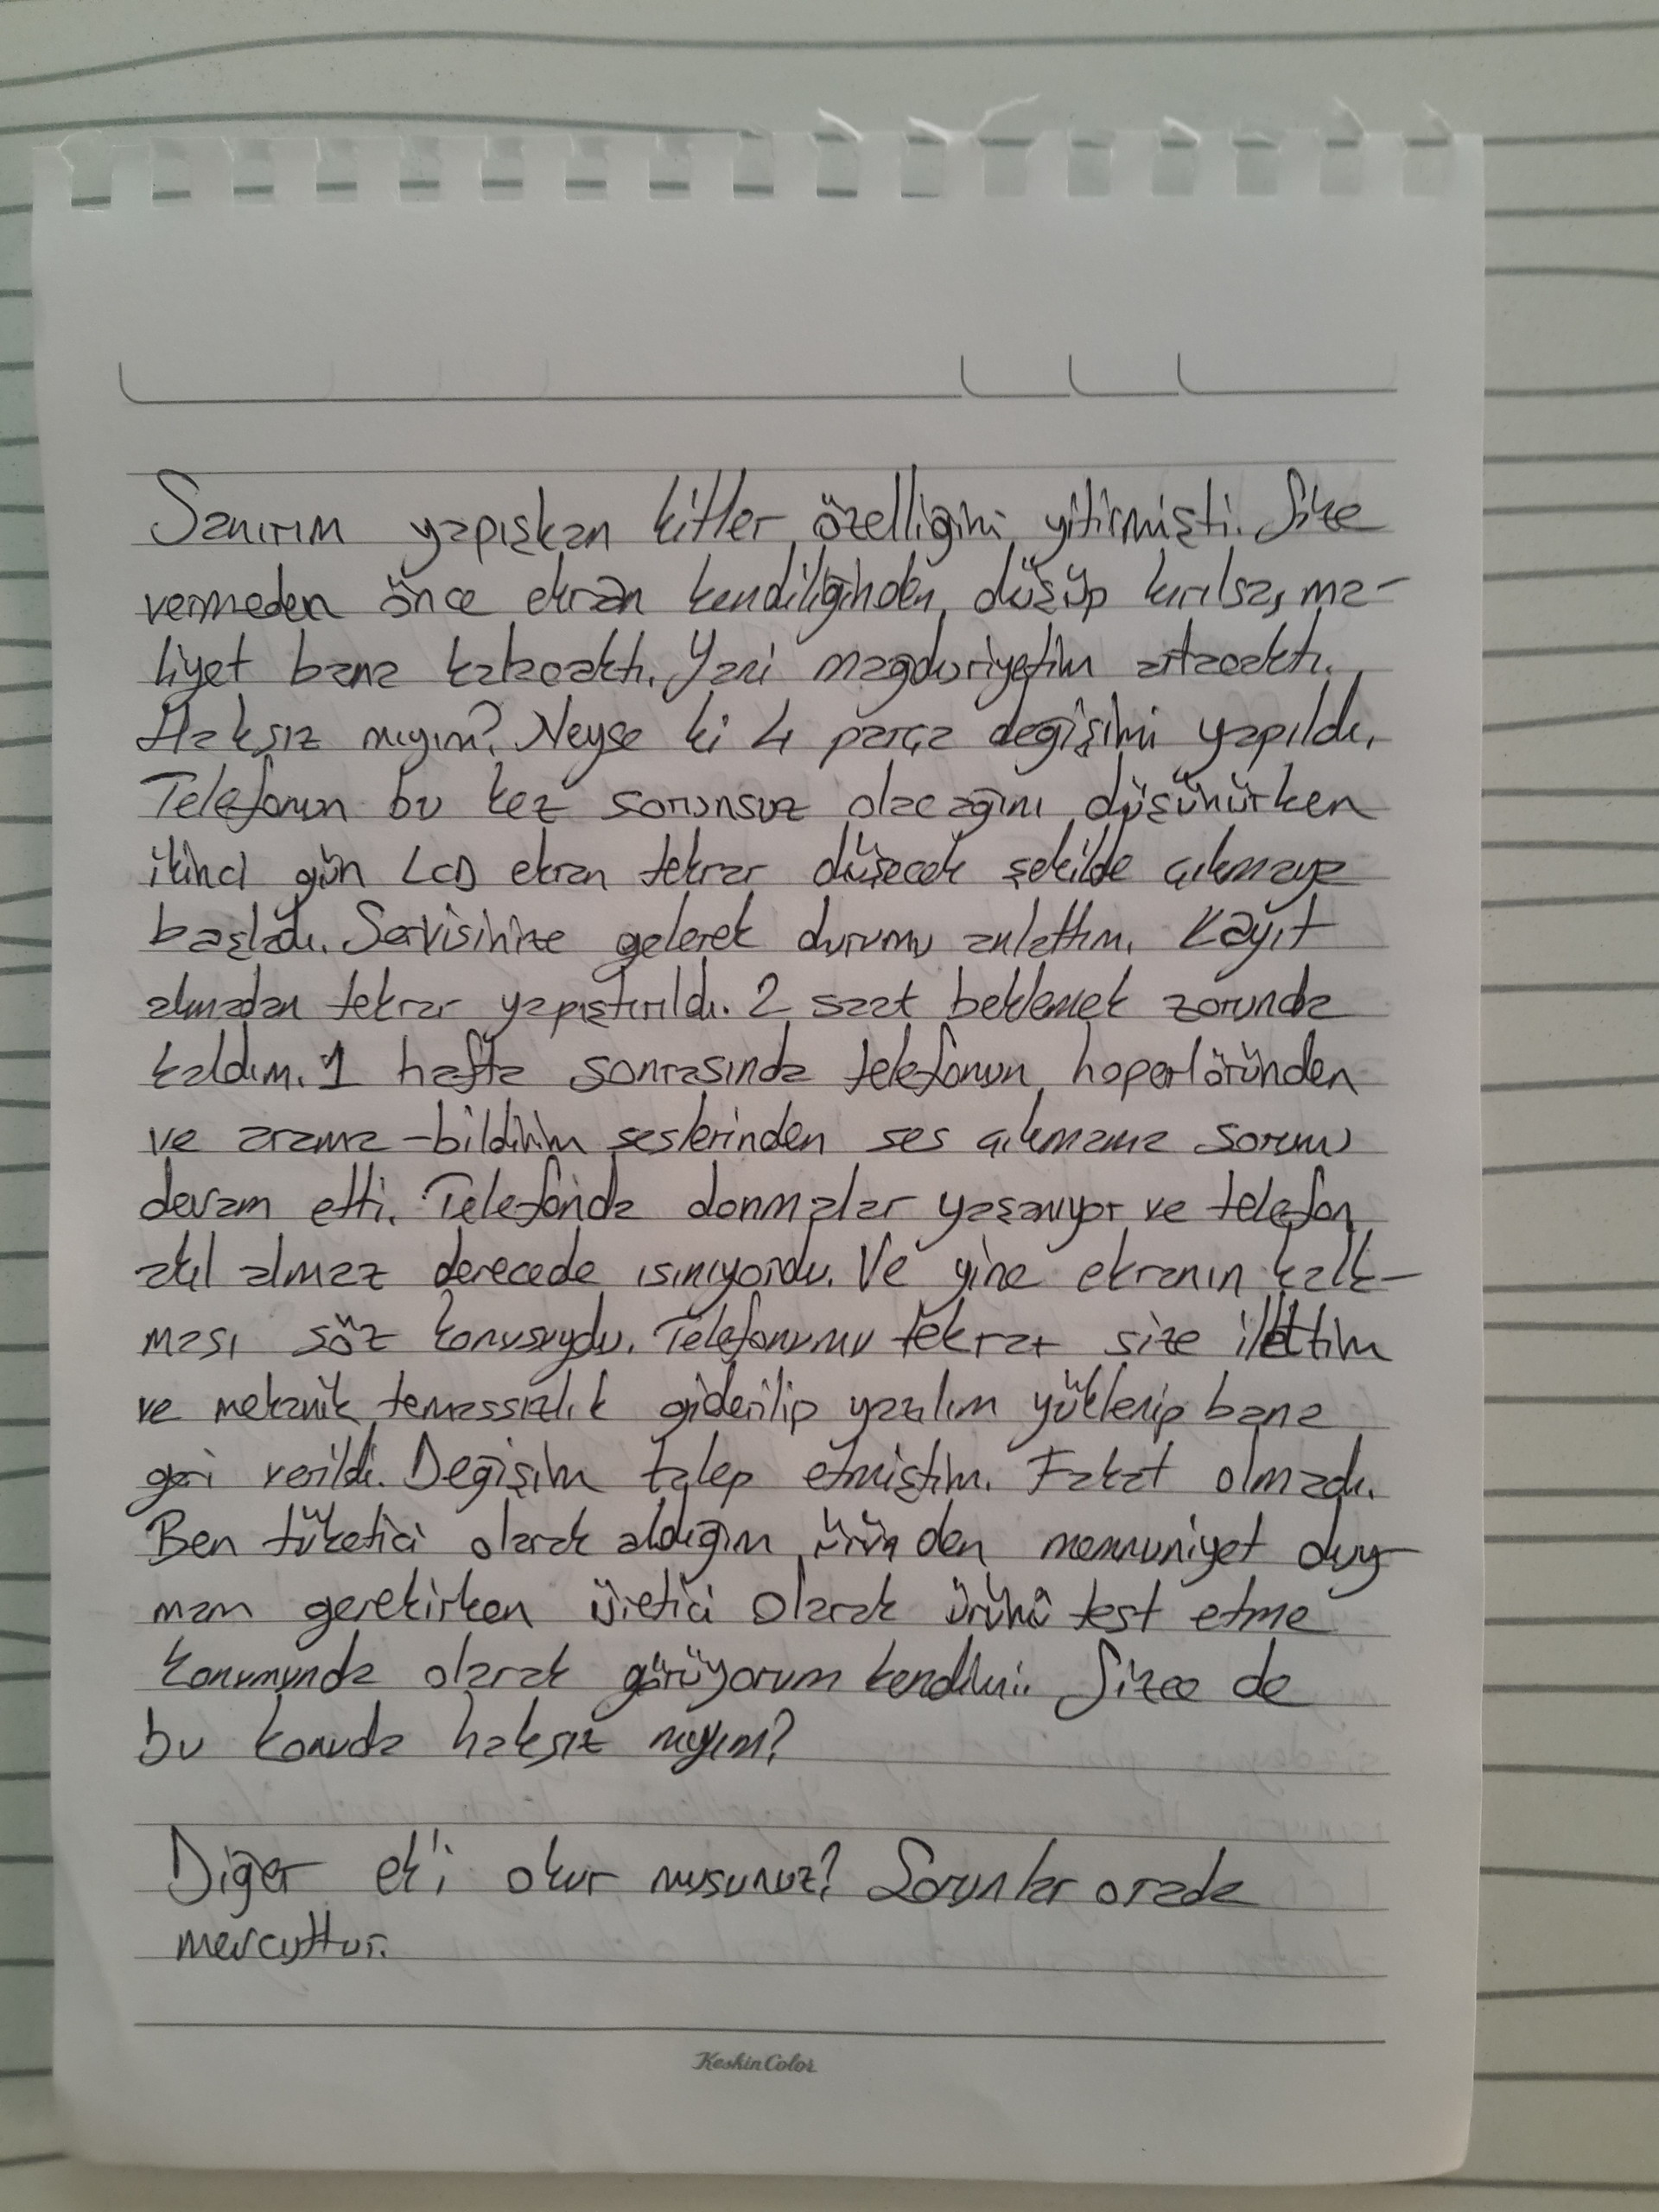 Sanırım yapışkan kitler özelliğini yitirmişti. Size
vermeden önce ekran kendiliğinden düşüp kırılsa, ma-
liyet bana kalacaktı. Yani mağduriyetim artacaktı.
Haksız mıyım? Neyse ki 4 parça değişimi yapıldı.
Telefonun bu kez sorunsuz olacağını düşünürken
ikinci gün LCD ekran tekrar düşecek şekilde çıkmaya
başladı. Servisinize gelerek durumu anlattım. Kayıt
almadan tekrar yapıştırıldı. 2 saat beklemek zorunda
kaldım. 1 hafta sonrasında telefonun hoperlöründen
ve arama-bildirim seslerinden ses çıkmama sorunu
devam etti. Telefonda donmalar yaşanıyor ve telefon
akıl almaz derecede ısınıyordu. Ve yine ekranın kalk-
ması söz konusuydu. Telefonumu tekrar size ilettim
ve mekanik temassızlık giderilip yazılım yüklenip bana
geri verildi. Değişim talep etmiştim. Fakat olmadı.
Ben tüketici olarak aldığım üründen memnuniyet duy-
mam gerekirken üretici olarak ürünü test etme
konumunda olarak görüyorum kendimi. Sizce de
bu konuda haksız mıyım?
Diğer ek'i okur musunuz? Sorunlar orada
mevcuttur.
KeskinColor